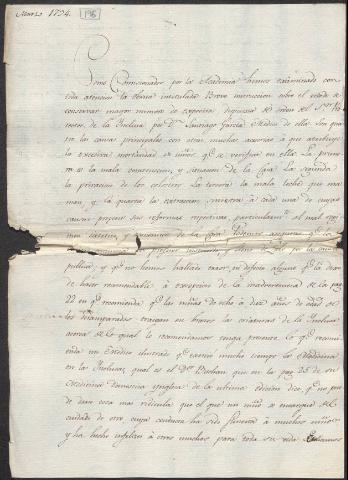 Marzo 1794.
196
Como Comisionados por la Academia hemos examinado con
toda atencion la obrita intitulada Breve instruccion sobre el modo de
conservar mayor numero de expositos dispuesta de orden del Sor
de la Inclusa por Dn. Santiago Garcia Medico de ella. Son qua
tro las causas principales con otras muchas accesorias à que atribuye
la excesiva mortandad de niños qe. se verifica en ella. La prime
ra es la mala construccion, y situacion de la Casa. La segunda
la privacion de los calostros. La tercera la mala leche que ma
man, y la quarta la
causas propone sus reformas respectivas, particularmte. el mal
de la Casa
publica, y qe. no hemos hallado razon, ni defecto alguno qe. la dexe
de hacer recomendable à excepcion de la inadvertencia de la pag.
22 en qe. recomienda qe. las niñas de ocho à diez años de edad de
los Desamparados traigan en brazos las criaturas de la Inclusa
acerca de lo qual le recomendamos tenga presente lo qe. recomi
enda un Medico ilustrado qe. exerció mucho tiempo la Medicina
en las Inclusas, qual es el Dor. Buchan que en la pag. 25 de su
Medicina Domestica Ynglesa de la ultima edicion dice, qe. no pue
de darse cosa mas ridicula que el que un niño se encargue del
cuidado de otro, cuya conducta ha sido funesta à muchos niños
y ha hecho infelices à otros muchos para toda su vida.